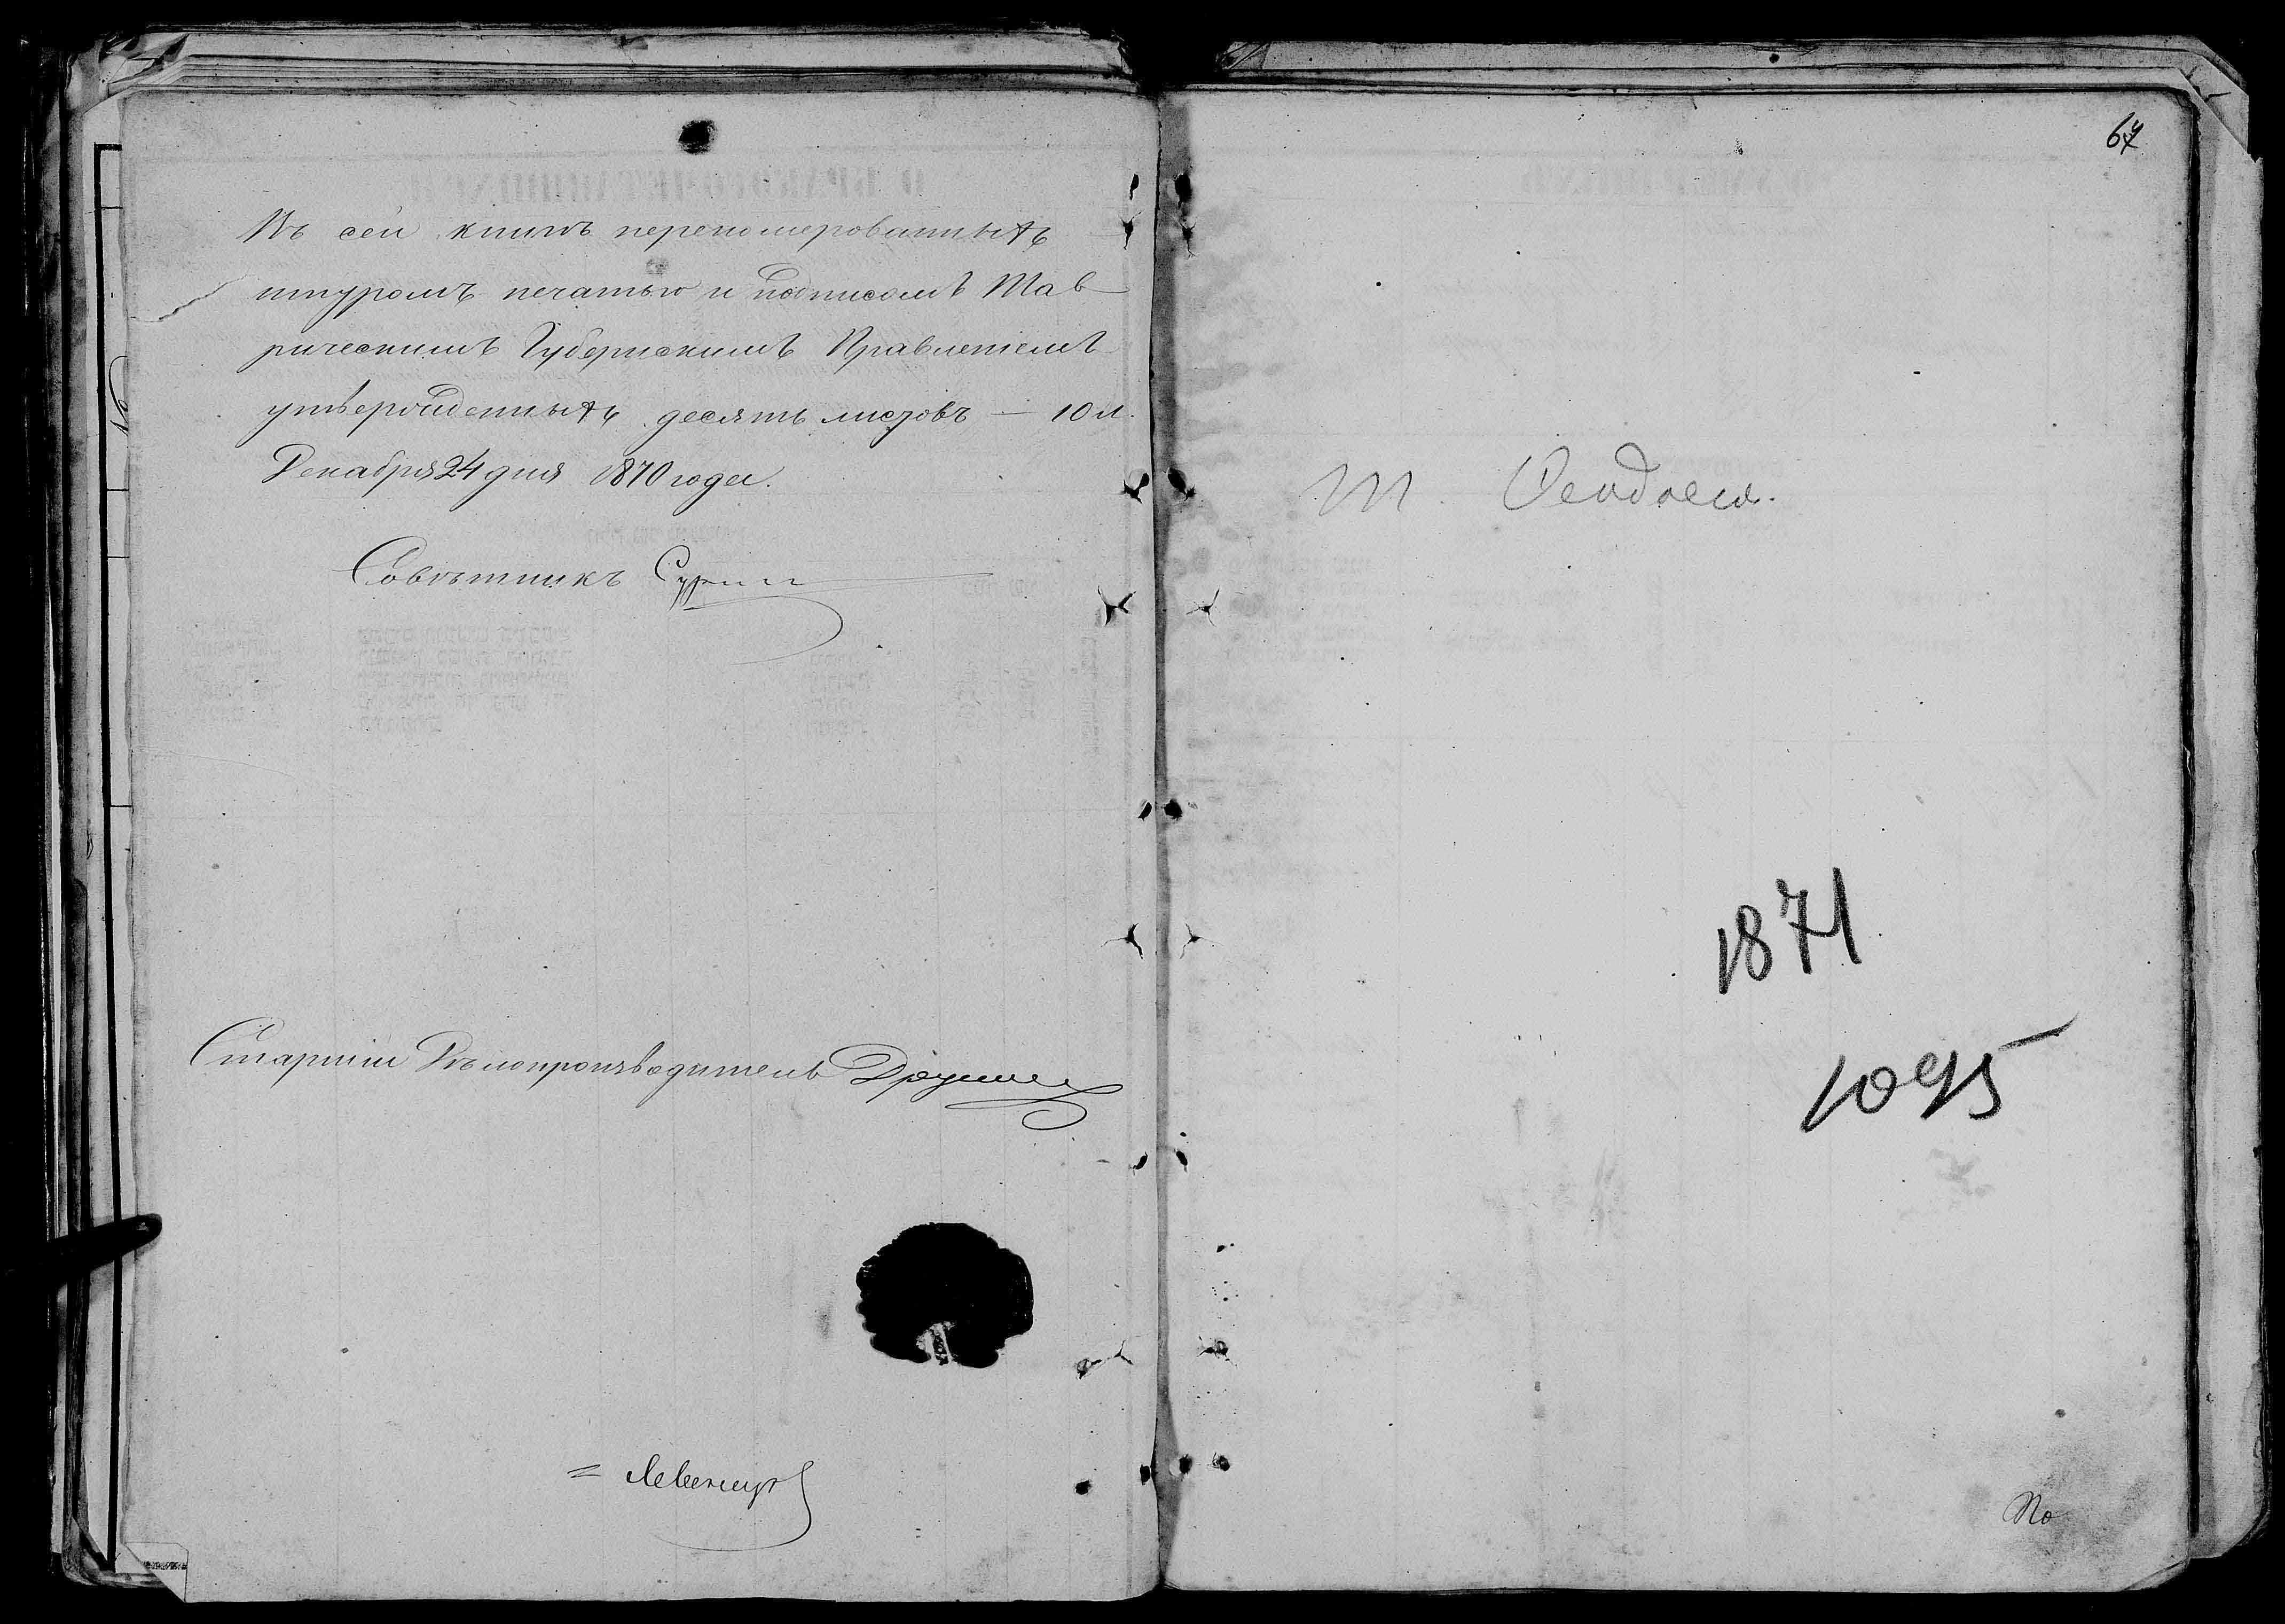 Въ сей книгѣ перенумерованныхъ
шнуромъ печатью и подписомъ Тав-
рическимъ Губернскимъ Правленіемъ
утвержденныхъ десять листовъ — 10 л.
Декабря 24 дня 1870 года.
Совѣтникъ
Старшій Дѣлопроизводитель
64
М. Ѳеодосія.
1871
1095
По